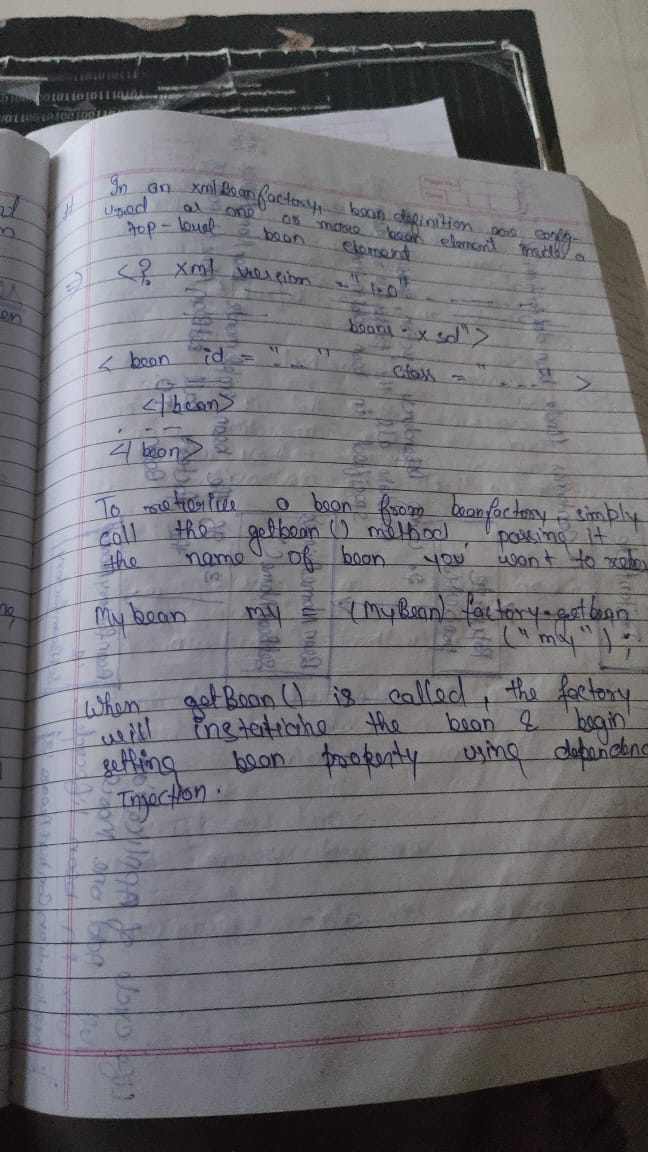 # In an xmlBeanfactory, bean definition are config-
ured as one or more bean element inside a
top-level bean element
=> <? xml version = "1.0" - - - -
beans.xsd">
< bean id = "..." class = "....  >
</bean>
. - -
</bean>
To retrive a bean from beanfactory, simply
call the getbean() method, passing it
the name of bean you want to
Mybean my (MyBean) factory.getbean
("my");
When getBean() is called, the factory
will the bean & begin
setting bean property using dependenc
Injection.